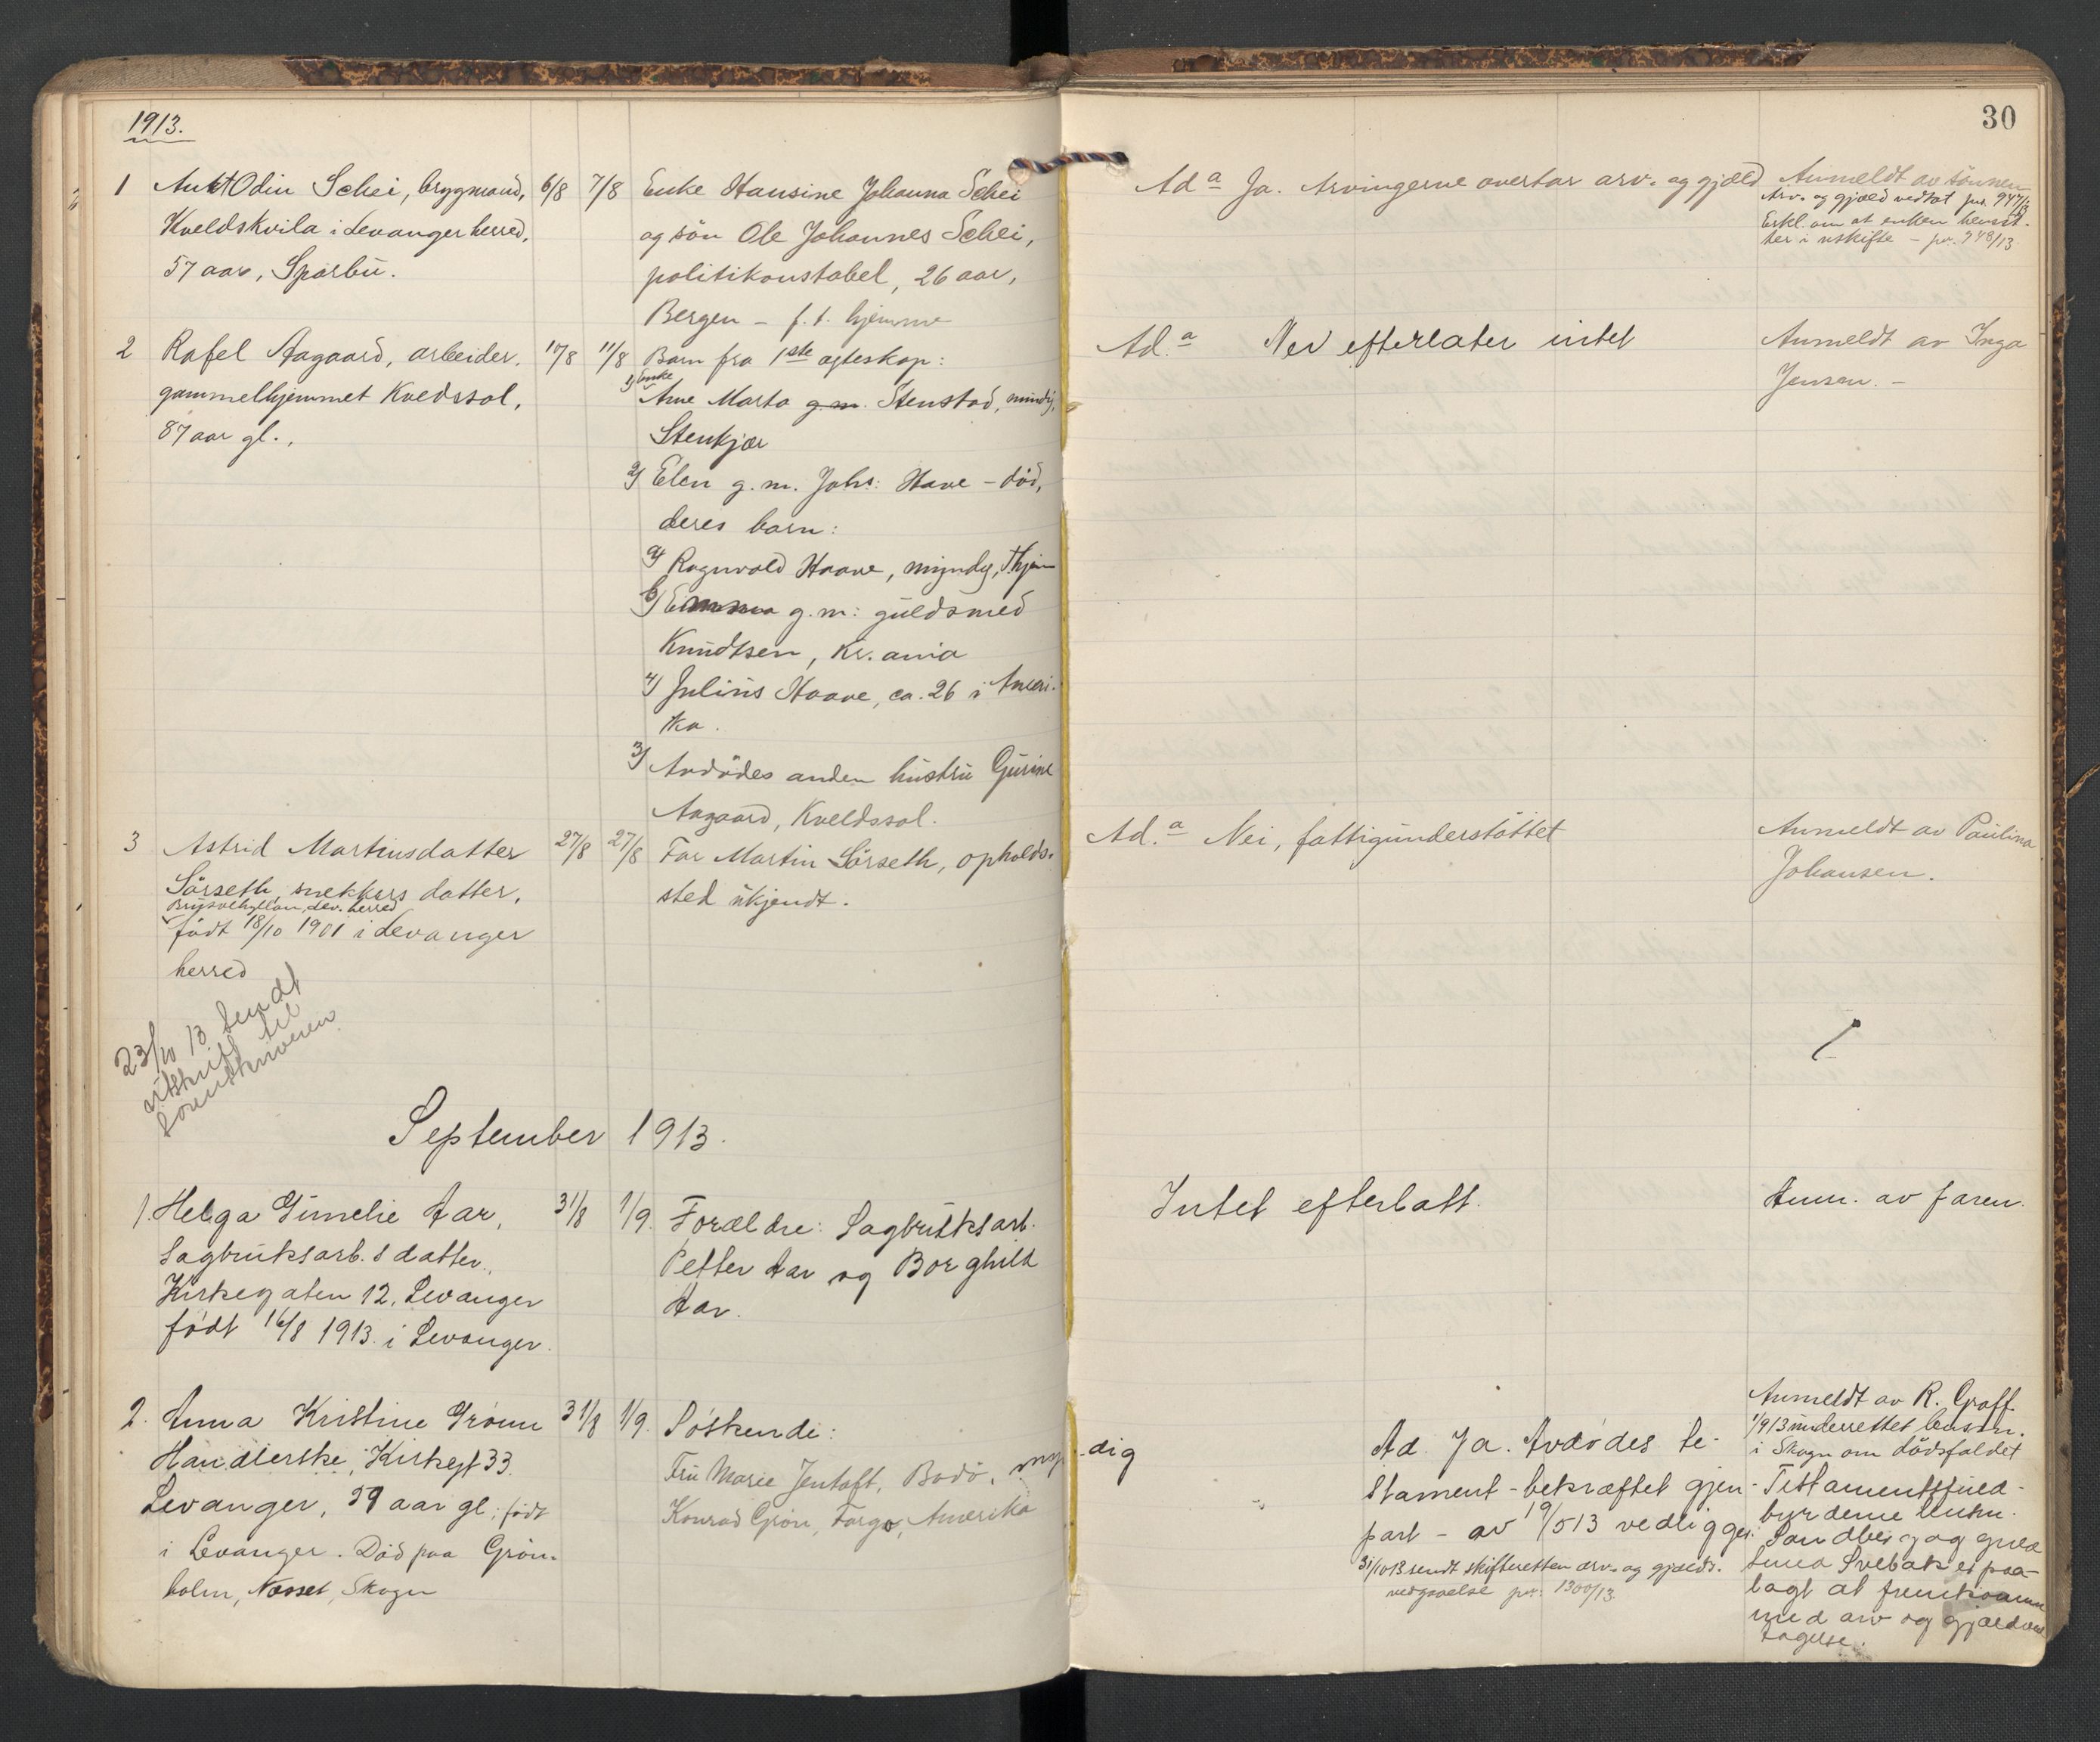 1913.
30
1 Odin Schei, brygmand, 6/8 7/8 Enke Hansine Johanna Schei
Kveldskvila i Levanger herred, og sön Ole Johannes Schei,
57 aar, Sparbu. politikonstabel, 26 aar,
Bergen – f. t. hjemme
Ad a Ja. Arvingerne overtar arv. og gjæld
Anmeldt av sönnen
Arv. og gjæld vedtat jnr. 947/13
Erkl. om at enken hensit-
ter i uskifte – jnr. 948/13
2 Rafel Aagaard, arbeider, 10/8 11/8 Barn fra 1ste egteskap:
gammelhjemmet Kvedssol, 1) enke Ane Marta g.m. Stenstad, myndig,
87 aar gl., Stenkjær
2) Elen g.m. Johs: Haave – död,
deres barn:
a) Ragnvald Haave, myndig, Thjem
b) Emma g.m: guldsmed
Knudtsen, Kr.ania
4) Julius Haave, ca. 26 i Ameri-
ka.
3) Avdödes anden hustru Gurine
Aagaard, Kveldssol.
Ad. a Nei efterlater intet
Anmeldt av Inga
Jensen. –
3 Astrid Martinsdatter 27/8 27/8 Far Martin Sörseth, opholds-
Sörseth, snekkers datter, sted ukjendt.
lev. herred
født 18/10 1901 i Levanger
herred
Ad. a Nei, fattigunderstöttet
Anmeldt av Paulina
Johansen.
23/10 13 sendt
utskrift til
sorenskriveren
September 1913.
1. Helga Gunelie Aar, 31/8 1/9. Forældre: Sagbruksarb.
Sagbruksarb.s datter., Petter Aar og Borghild
Kirkegaten 12, Levanger Aar.
født 16/8 1913 i Levanger.
Intet efterlatt.
Anm. av faren.
2. Anna Kristine Grönn 31/8 1/9. Söskende:
Handlerske, Kirkegt 33. Fru Marie Jentoft, Bodö, myn-dig
Levanger, 59 aar gl; født Konrad Grön, Fargo, Amerika
i Levanger. Död paa Grön-
holm, Nesset, Skogn
Ad. Ja. Avdödes te-
stament – bekræftet gjen-
part – av 19/5 13 vedligger.
31/10 13 sendt skifteretten arv. og gjælds.
vedgaaelse jnr: 1300/13.
Anmeldt av R. Graff.
1/9 13 underrettet lensm.
i Skogn om dödsfaldet
Testamentsfuld-
byrderne lensm.
Sandberg og
Svebak er paa-
lagt at fremkomme
med arv og gjældved
tagelse.